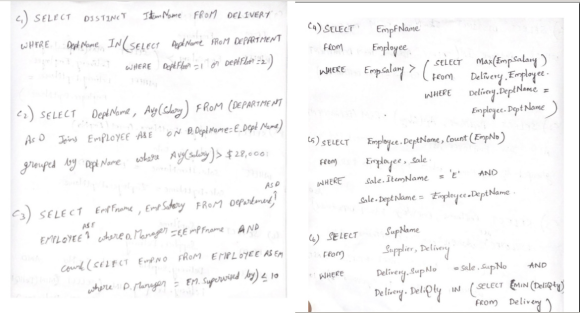 C1) SELECT DISTINCT ItemName FROM DELIVERY
WHERE DeptName IN (SELECT DeptName FROM DEPARTMENT
WHERE DeptFloor =1 or DeptFloor =2)
C2) SELECT DeptName, Avg(Salary) FROM (DEPARTMENT
AS D Join EMPLOYEE AS E ON D.DeptName=E.Dept Name)
grouped by Dept Name where Avg(Salary) > $28,000
C3) SELECT EmpFname, EmpSalary FROM Department AS D,
EMPLOYEE where D.Manager = EmpFname AND
count (SELECT EmpNO FROM EMPLOYEE AS EM
where D.Manager = EM.Supervised by) ≤ 10
C4) SELECT EmpFName
FROM Employee
WHERE EmpSalary > (SELECT Max(EmpSalary)
FROM Delivery, Employee.
WHERE Delivery.DeptName =
Employee.DeptName)
C5) SELECT Employee.DeptName, Count (EmpNo)
FROM Employee, Sale
WHERE Sale.ItemName = 'E' AND
Sale.DeptName = Employee.DeptName.
SELECT SupName
FROM Supplier, Delivery
WHERE Delivery.SupNo = Sale.SupNo AND
Delivery.DelQty IN (SELECT (MIN (DelQty)
FROM Delivery)